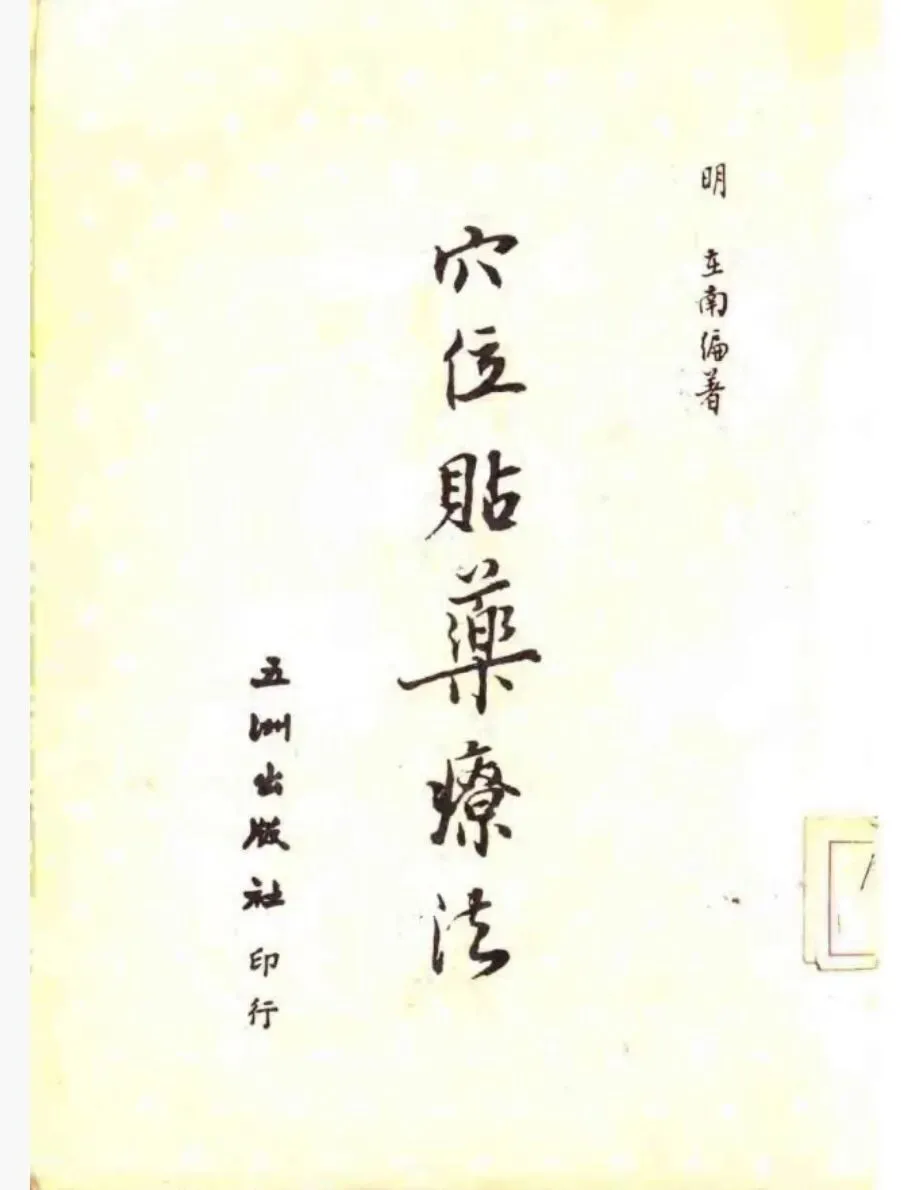 明 在南編著
穴位貼藥療法
五洲出版社印行